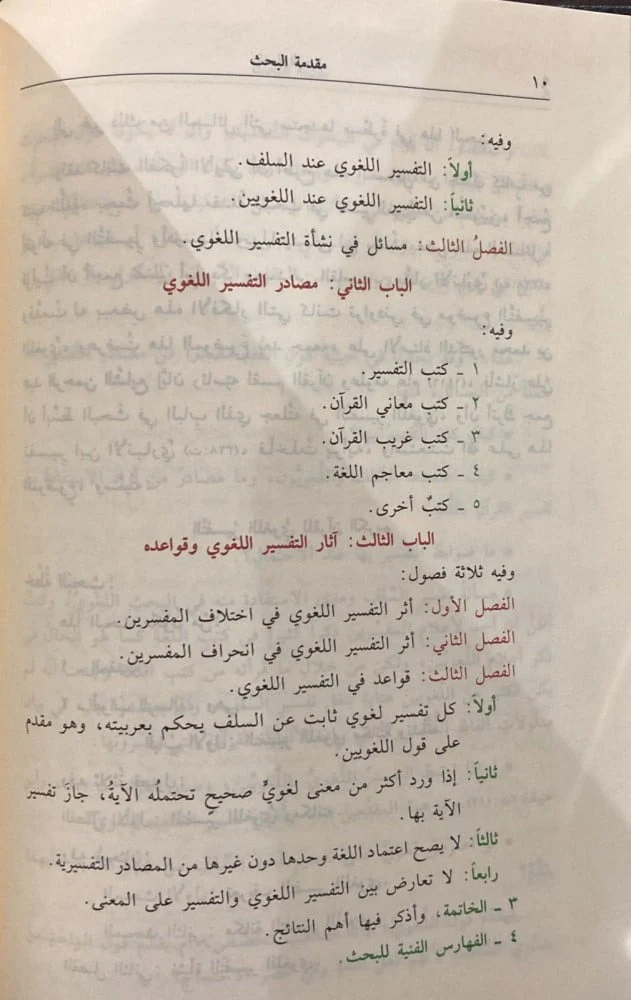 مقدمة البحث
١٠
وفيه:
أولاً: التفسير اللغوي عند السلف.
ثانياً: التفسير اللغوي عند اللغويين.
الفصلُ الثالث: مسائل في نشأة التفسير اللغوي.
الباب الثاني: مصادر التفسير اللغوي
وفيه:
١ ـ كتب التفسير.
٢ ـ كتب معاني القرآن.
٣ ـ كتب غريب القرآن.
٤ ـ كتب معاجم اللغة.
٥ ـ كتبٌ أخرى.
الباب الثالث: آثار التفسير اللغوي وقواعده
وفيه ثلاثة فصول:
الفصل الأول: أثر التفسير اللغوي في اختلاف المفسرين.
الفصل الثاني: أثر التفسير اللغوي في انحراف المفسرين.
الفصل الثالث: قواعد في التفسير اللغوي.
أولاً: كل تفسير لغوي ثابت عن السلف يحكم بعربيته، وهو مقدم
على قول اللغويين.
ثانياً: إذا ورد أكثر من معنى لغويٍّ صحيحٍ تحتملُه الآيةُ، جازَ تفسير
الآية بها.
ثالثاً: لا يصح اعتماد اللغة وحدها دون غيرها من المصادر التفسيرية.
رابعاً: لا تعارض بين التفسير اللغوي والتفسير على المعنى.
٣ ـ الخاتمة، وأذكر فيها أهم النتائج.
٤ ـ الفهارس الفنية للبحث.